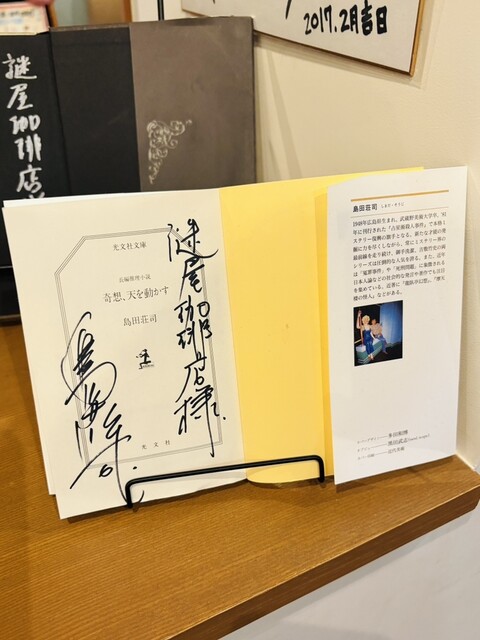 2017.2月吉日
謎屋珈琲店
光文社文庫
長編推理小説
奇想、天を動かす
島田荘司
光文社
謎屋珈琲店様
島田荘司
島田荘司 しまだ・そうじ
1948年広島県生まれ。武蔵野美術大学卒。'81
年に刊行された『占星術殺人事件』で本格ミ
ステリー復興の旗手となる。新たな才能の発
掘に力を尽くしながら、常にミステリー界の
最前線を走り続け、御手洗潔、吉敷竹史の両
シリーズは圧倒的な人気を誇る。また、近年
は『冤罪事件』や『死刑問題』に象徴される
日本人論などの社会的な発言や著作でも注目
を集めている。近著に
カバーデザイン